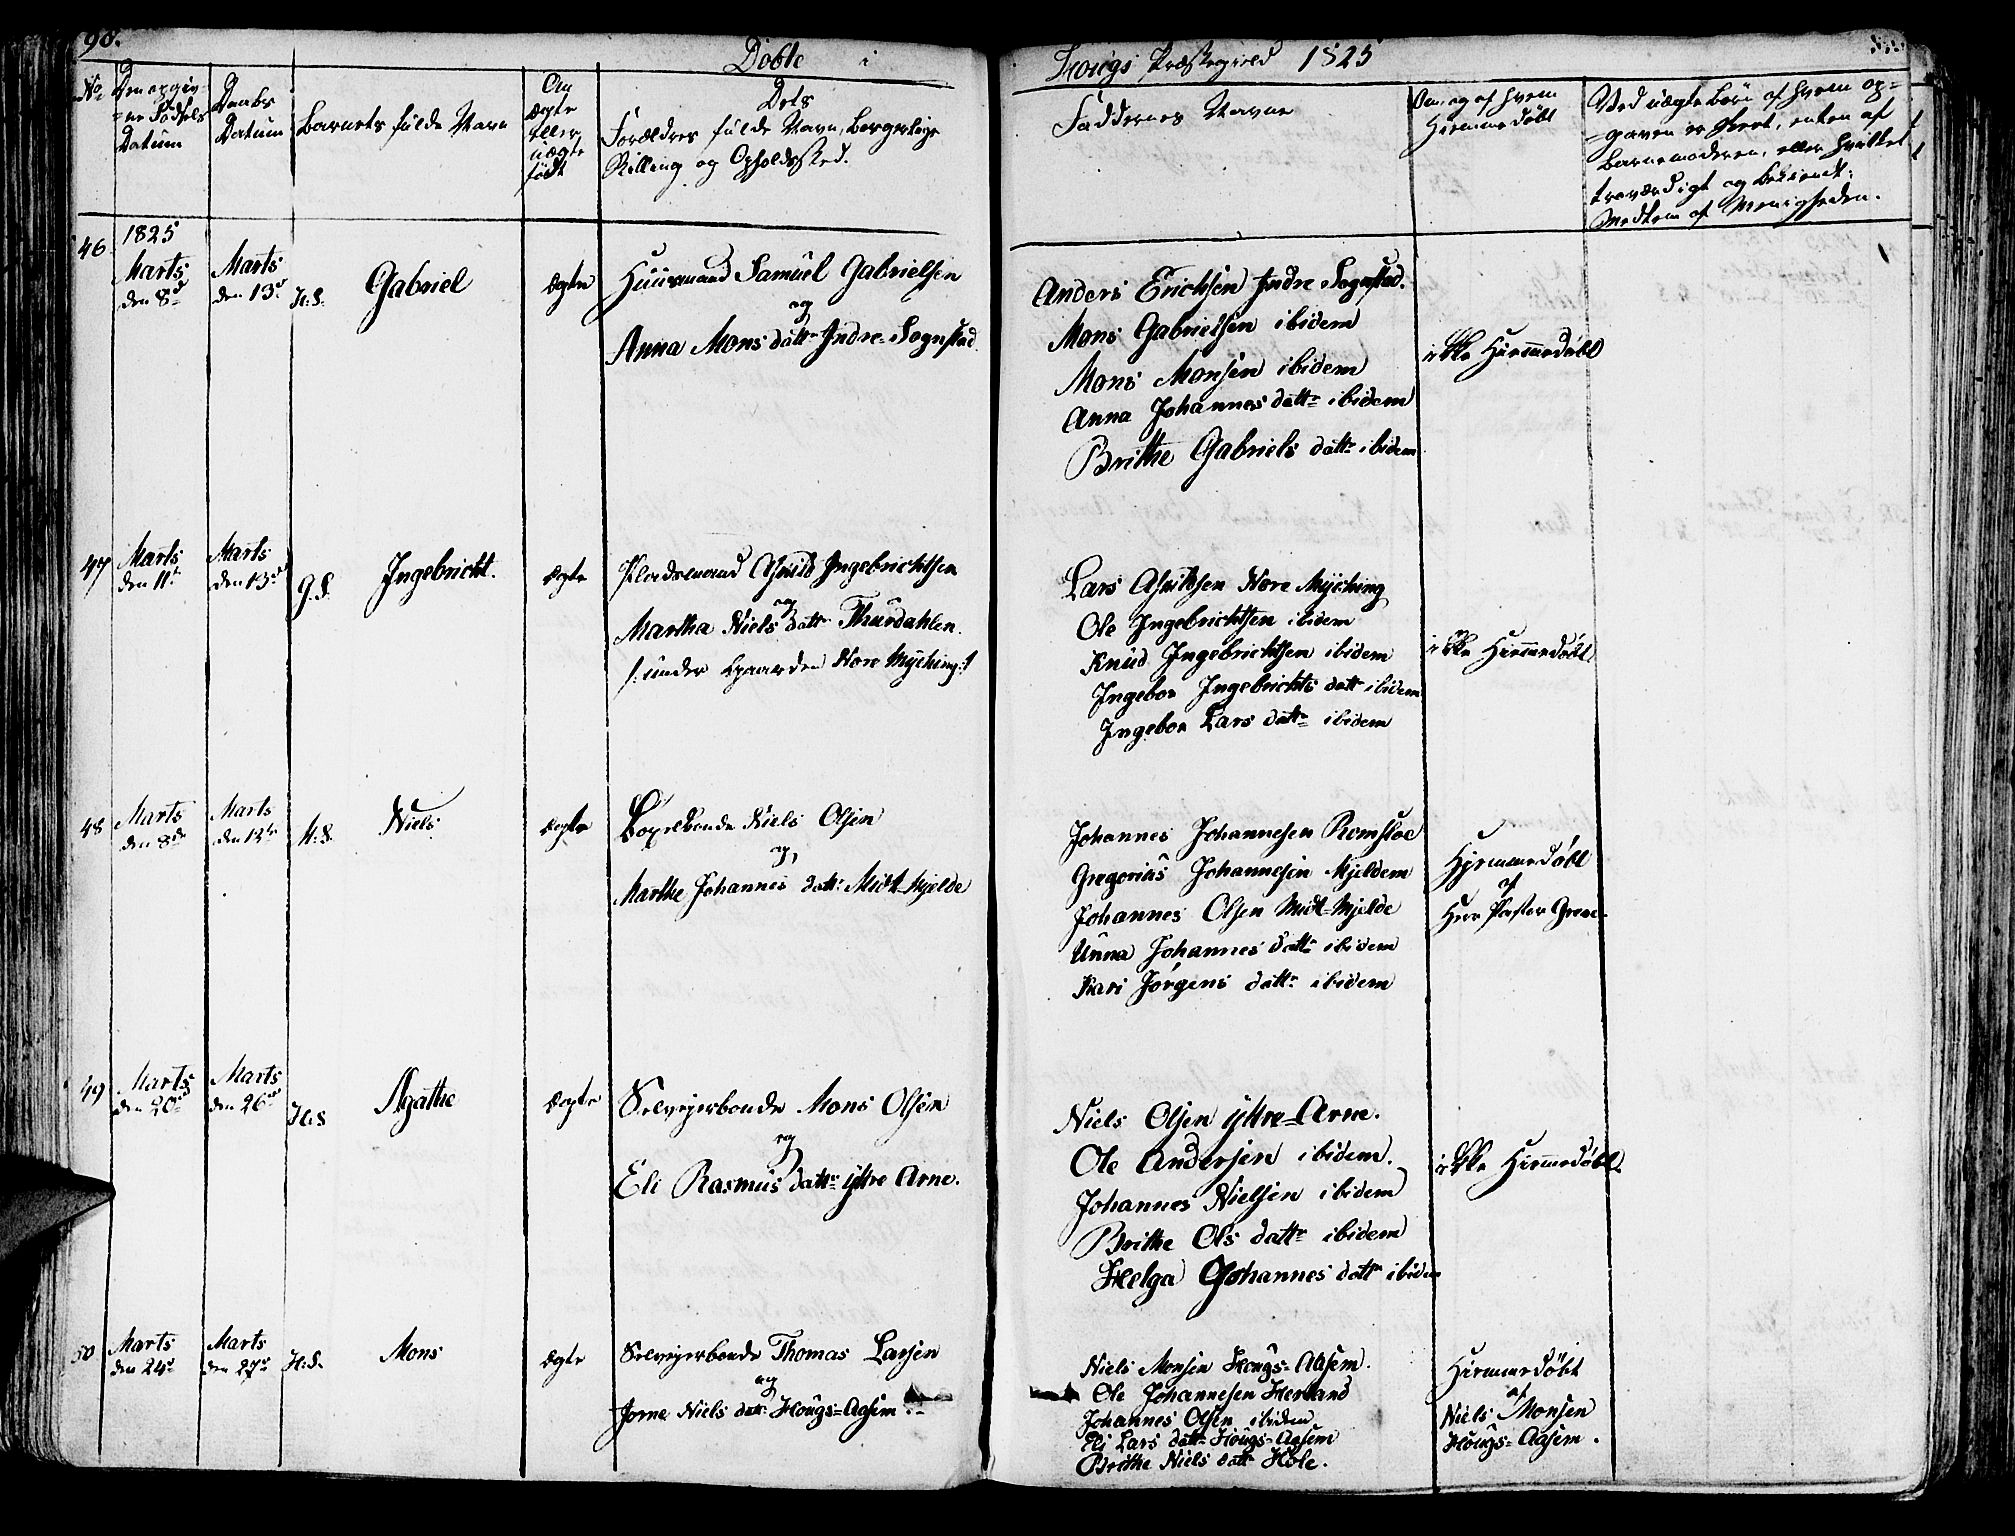 98.
Døbte i
Hougs Præstegield 1825
No
Den opgiv-
=ne Fødsels
Datum
Daabs
Datum
Barnets fulde Navn
Om
ægte
eller
uægte
født
Dets
Forældres fulde Navn, Borgerlige
Stilling og Opholdssted.
Faddernes Navne
Om, og af hvem
Hiemmedøbt
Ved uægte Børn af hvem op=
=gaven er skeet, enten af
Barnemoderen, eller hvilket
troværdigt og bekiendt
Medlem af Menigheden.
46
1825
Marts
den 8d
Marts
den 13d
H.S.
Gabriel
ægte
Huusmand Samuel Gabrielsen
og
Anna Mons datt. Indre=Sognstad
Anders Erichsen Indre=Sognstad.
Mons Gabrielsen ibidem
Mons Monsen ibidem
Anna Johannes datt. ibidem
Brithe Gabriels datt. ibidem
ikke Hiemmedøbt
47
Marts
den 11t
Marts
den 13d
H.S.
Ingebricht.
ægte
Pladsmand Ingebrichtsen
og
Martha Niels datt. Thurdahlen.
/: under Gaarden Nore Myching :/
Lars Nore Myching
Ole Ingebrichtsen ibidem
Knud Ingebrichtsen ibidem
Ingebor Ingebrichts datt ibidem
Ingebor Lars datt. ibidem
ikke Hiemmedøbt
48
Marts
den 8de
Marts
den 13de
H.S.
Niels
ægte
Bopælbonde Niels Olsen
og,
Marthe Johannes datt. Midt-Mjelde
Johannes Johannesen Romsloe
Gregorius Johannesen Mjeldem
Johannes Olsen Midt=Mjelde
Unna Johannes datt. ibidem
Kari Jørgens datt. ibidem
Hjemmedøbt
af
Herr Pastor
49
Marts
den 20de
Marts
den 26de
H.S
Agathe
ægte
Selvejerbonde Mons Olsen
og
Eli Rasmus datt. ÿttre Arne.
Niels Olsen ÿttre=Arne.
Ole Andersen ibidem.
Johannes Nielsen ibidem
Brithe Ols datt. ibidem
Helga Johannes datt. ibidem
ikke Hiemmedøbt.
50
Marts
den 24d
Marts
den 27d
H.S.
Mons
ægte
Selvejerbonde Thomas Larsen
og
Jorne Niels datt. Hougs=Aasem
Niels Monsen Hougs=Aasem.
Ole Johannesen Herland
Johannes Olsen ibidem
Eli Lars datt. Hougs=Aasem
Brithe Niels datt. Hole.
Hiemmedøbt
af
Niels Monsen
Hougs=Aasem.